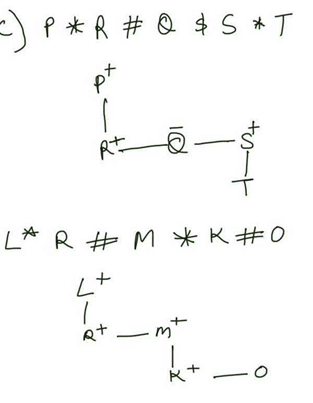 c) P * R # Q $ S * T
P+
R+ — Q̄ — S+
T
L* R # M * K # O
L+
R+ — M+
K+ — O